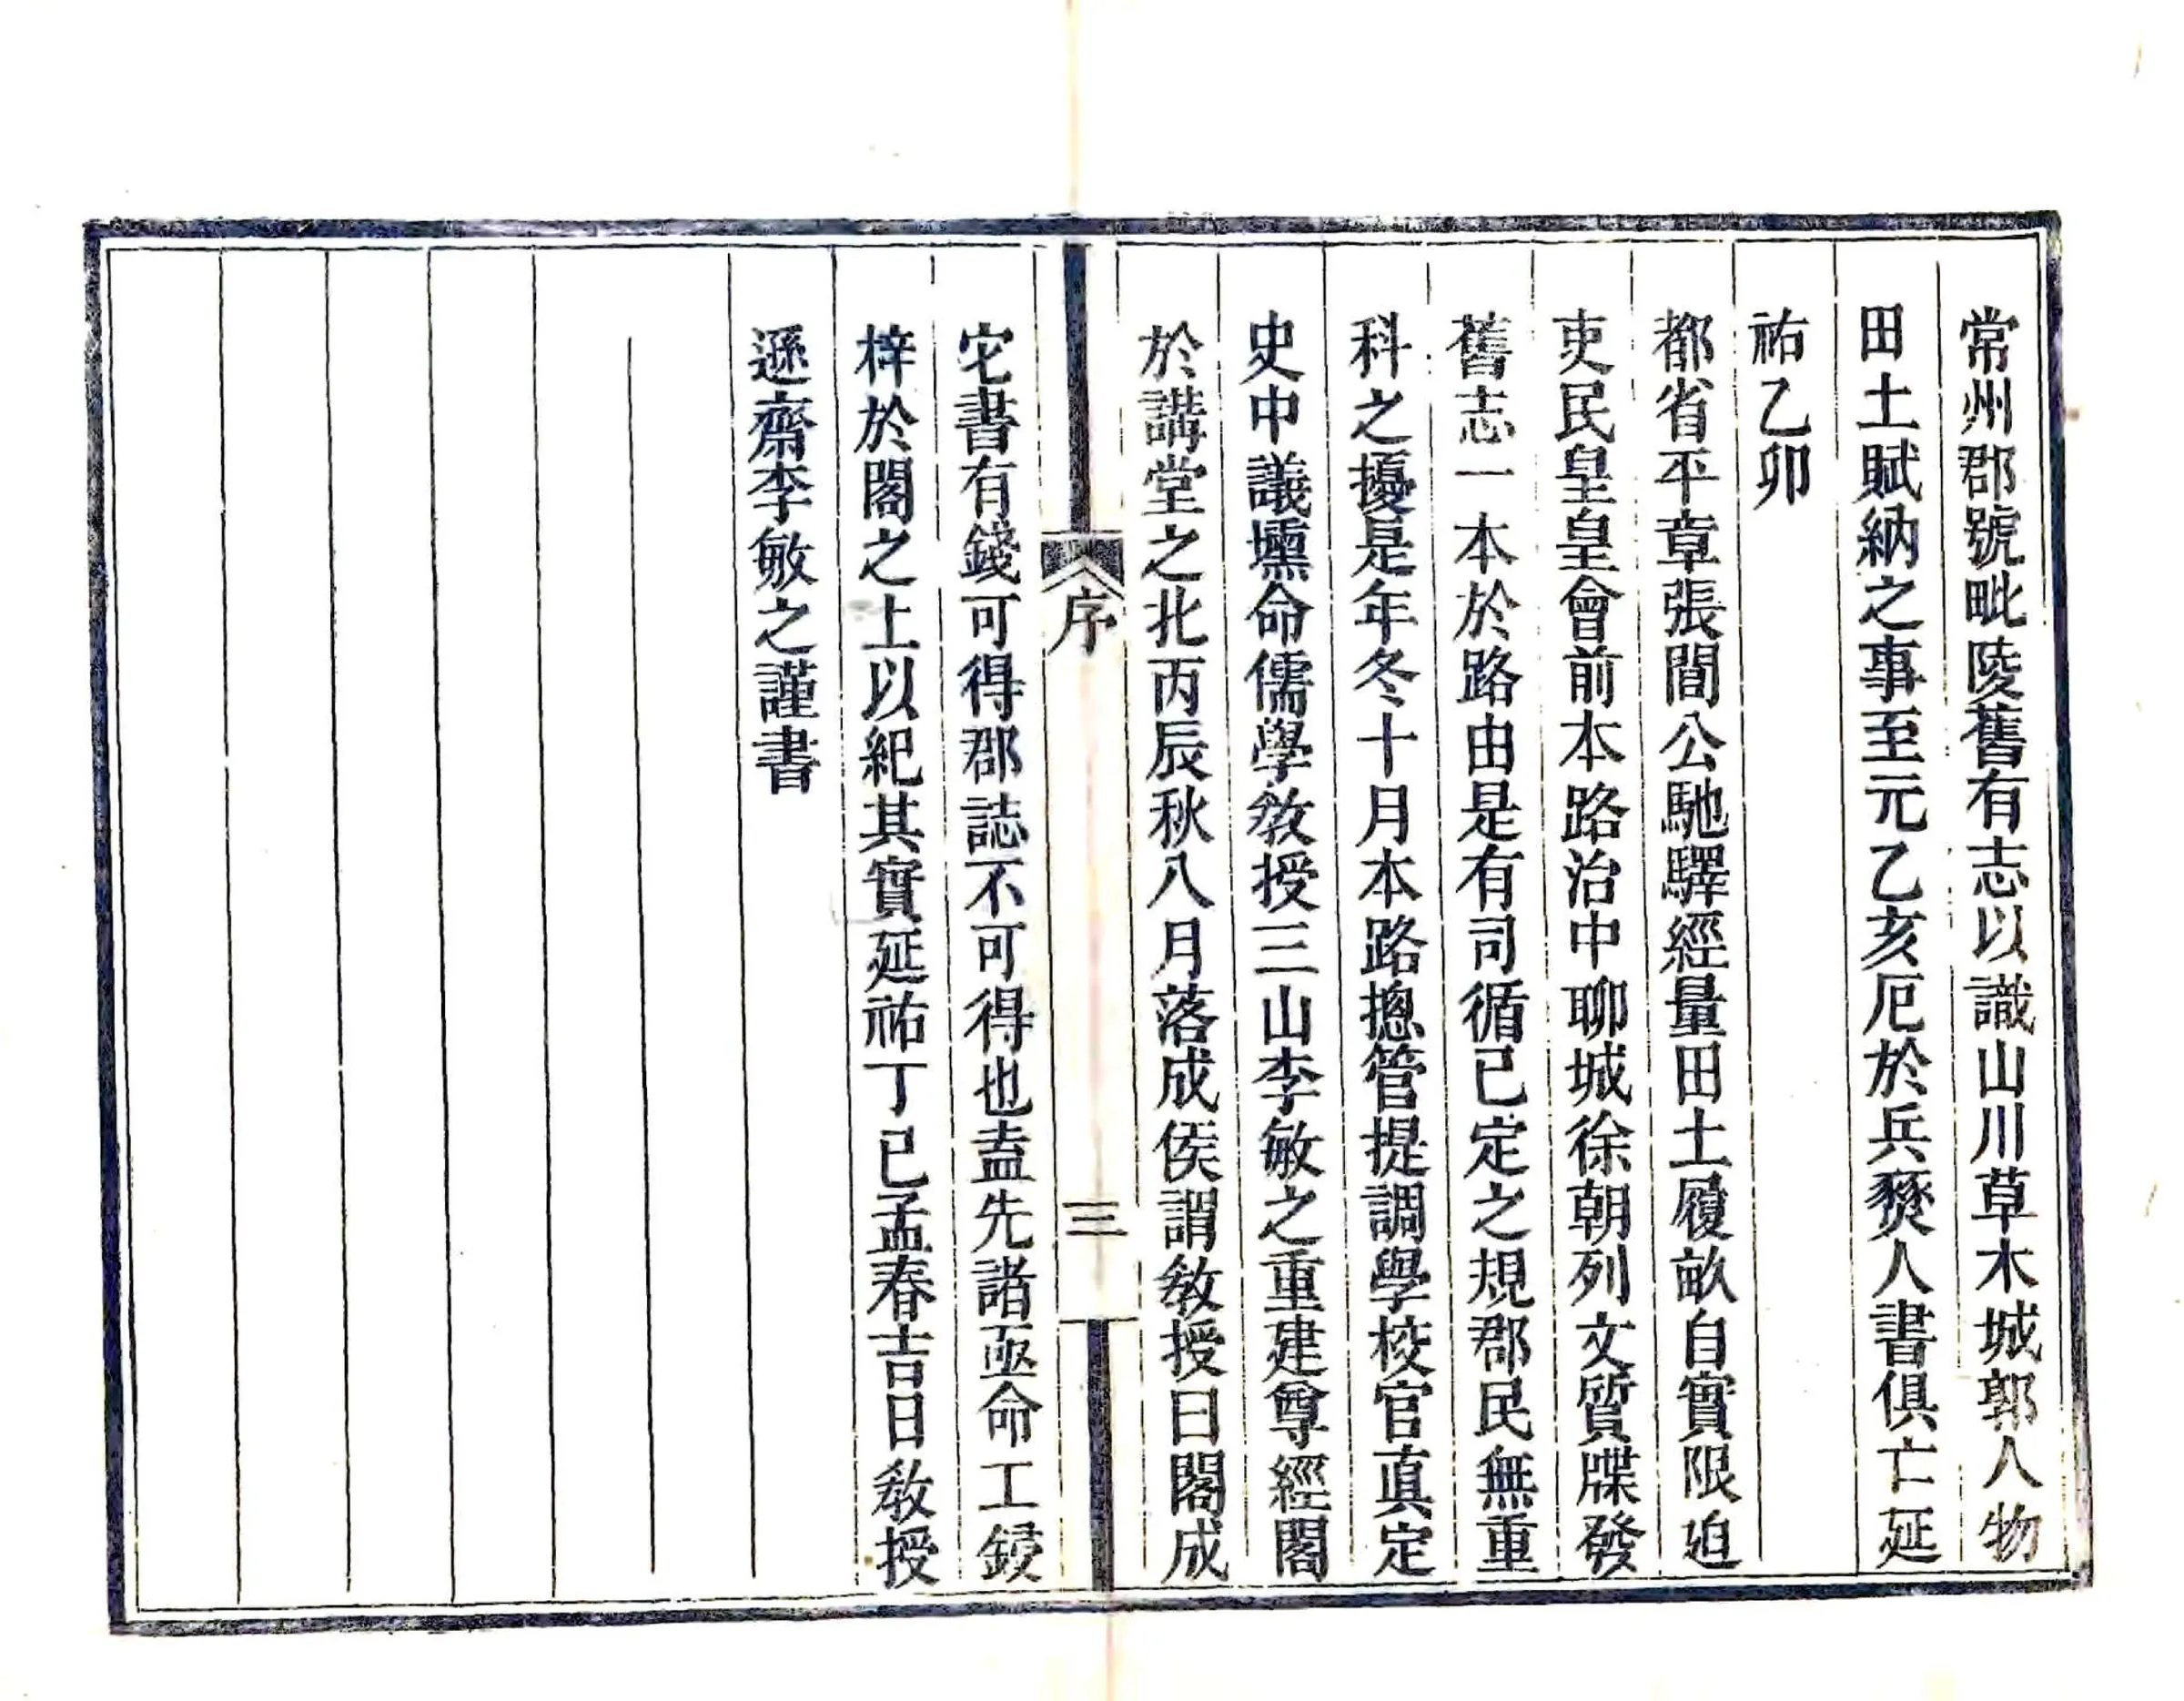 常州郡號毗陵舊有志以識山川草木城郭人物
田土賦納之事至元乙亥厄於兵燹人書俱亡延
祐乙卯
都省平章張閭公馳驛經量田土履畝自實限迫
吏民皇皇會前本路治中聊城徐朝列文質牒發
舊志一本於路由是有司循已定之規郡民無重
科之擾是年冬十月本路摠管提調學校官真定
史中議壎命儒學敎授三山李敏之重建尊經閣
於講堂之北丙辰秋八月落成侯謂敎授曰閣成
序
三
它書有錢可得郡誌不可得也盍先諸亟命工鋟
梓於閣之上以紀其實延祐丁巳孟春吉日敎授
遜齋李敏之謹書